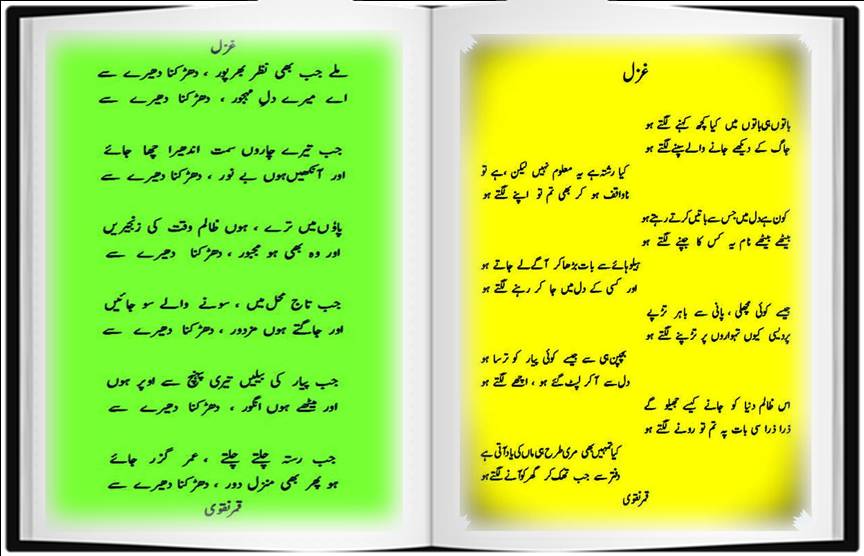 غزل
باتوں ہی باتوں میں کیا کچھ کہنے لگتے ہو
جاگ کے دیکھے جانے والے سپنے لگتے ہو
کیا رشتہ ہے یہ معلوم نہیں لیکن ، ہے تو
ناواقف ہو کر بھی تم تو اپنے لگتے ہو
کون ہے دل میں جس سے باتیں کرتے رہتے ہو
بیٹھے بیٹھے نام یہ کس کا جپنے لگتے ہو
ہیلو ہائے سے بات بڑھا کر آگے لے جاتے ہو
اور کسی کے دل میں جا کر رہنے لگتے ہو
جیسے کوئی مچھلی ، پانی سے باہر تڑپے
پردیسی کیوں تہواروں پر تڑپنے لگتے ہو
بچپن ہی سے جیسے کوئی پیار کو ترسا ہو
دل سے آ کر لپٹ گئے ہو ، اچھے لگتے ہو
اس ظالم دنیا کو جانے کیسے جھیلو گے
ذرا ذرا سی بات پہ تم تو رونے لگتے ہو
کیا تمہیں بھی مری طرح ہی ماں کی یاد آتی ہے
دفتر سے جب تھک کر گھر کو آنے لگتے ہو
قمر نقوی
غزل
ملے جب بھی نظر بھرپور ، دھڑکنا دھیرے سے
اے میرے دلِ مہجور ، دھڑکنا دھیرے سے
جب تیرے چاروں سمت اندھیرا چھا جائے
اور آنکھیں ہوں بے نور ، دھڑکنا دھیرے سے
پاؤں میں ترے ، ہوں ظالم وقت کی زنجیریں
اور وہ بھی ہو مجبور ، دھڑکنا دھیرے سے
جب تاج محل میں ، سونے والے سو جائیں
اور جاگتے ہوں مزدور ، دھڑکنا دھیرے سے
جب پیار کی بیلیں تیری پہنچ سے اوپر ہوں
اور میٹھے ہوں انگور ، دھڑکنا دھیرے سے
جب رستہ چلتے چلتے ، عمر گزر جائے
ہو پھر بھی منزل دور ، دھڑکنا دھیرے سے
قمر نقوی